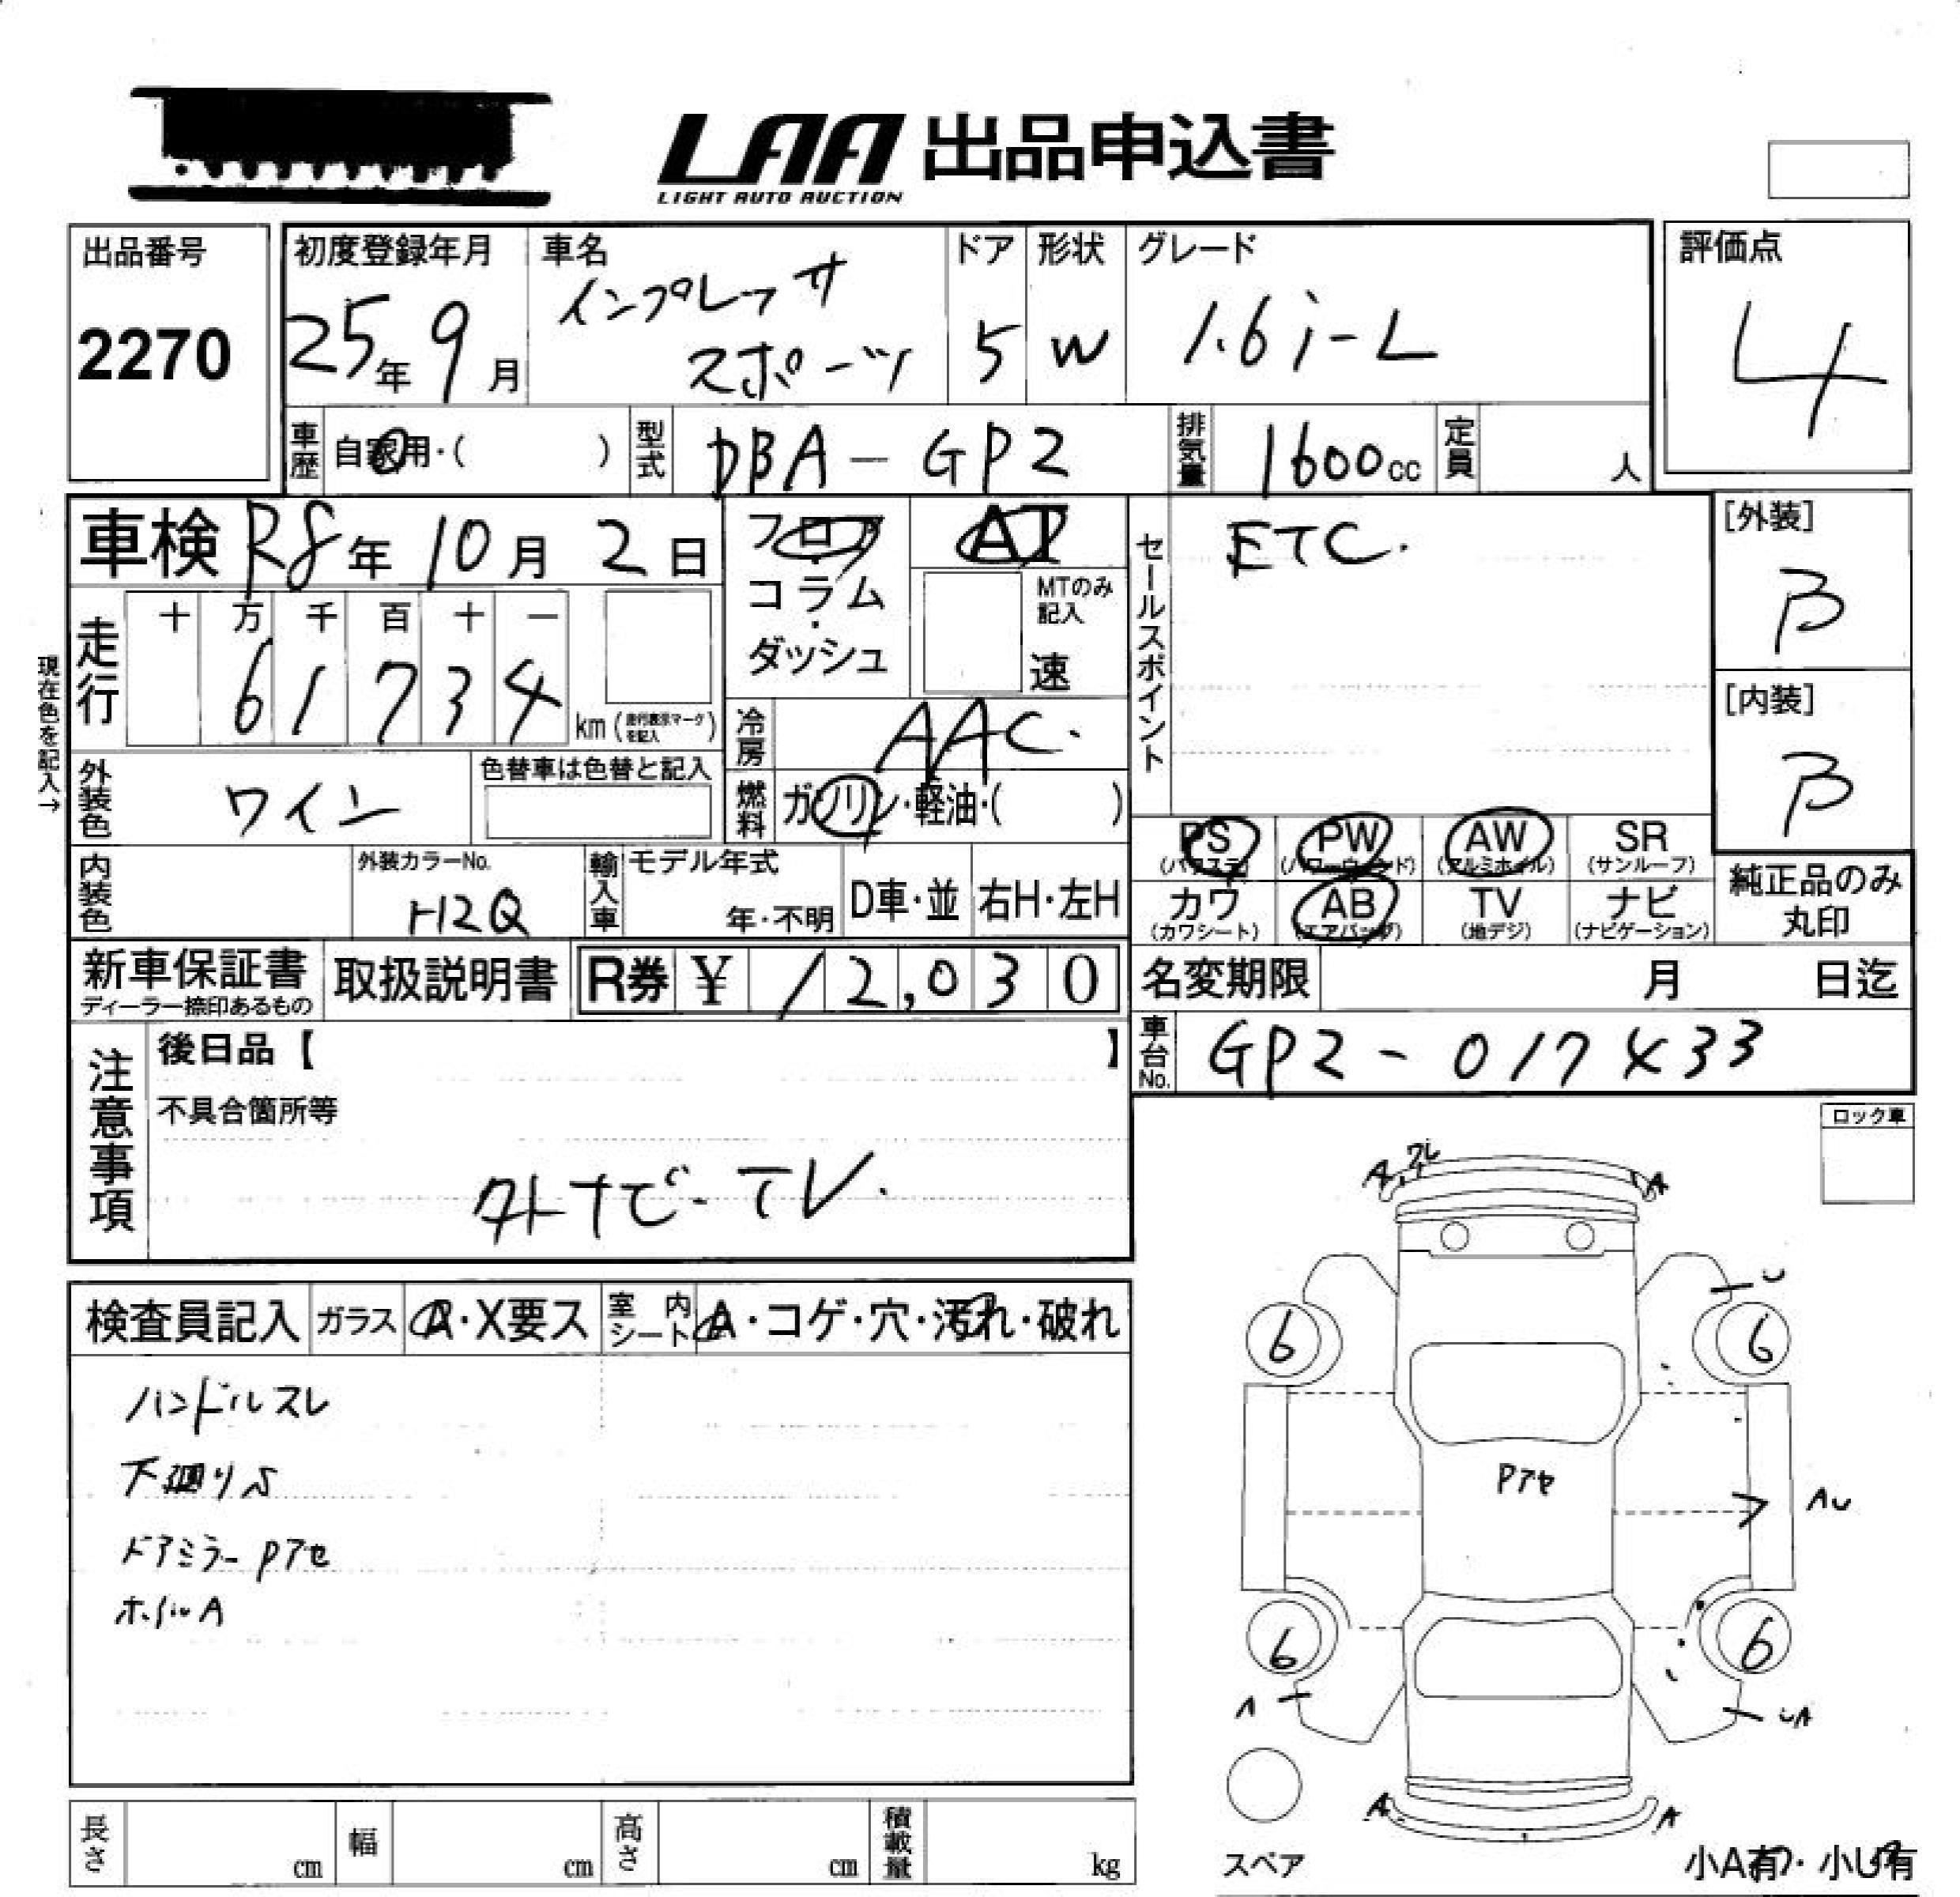 LAA 出品申込書
LIGHT AUTO AUCTION
出品番号
2270
初度登録年月
25年 9月
車名
インプレッサ
スポーツ
ドア
5
形状
W
グレード
1.6i-L
評価点
4
車歴 自家用・( )
型式 DBA-GP2
排気量 1600cc
定員 人
車検 R8年 10月 2日
フロア・コラム・ダッシュ
AT
MTのみ
記入
速
セールスポイント
ETC.
[外装]
B
[内装]
B
走行
十 万 千 百 十 一
6 1 7 3 4
km (走行表示マークを記入)
現在色を記入→
冷房 AAC.
燃料 ガソリン・軽油・( )
外装色 ワイン
色替車は色替と記入
内装色
外装カラーNo.
H2Q
輸入車
モデル年式
年・不明
D車・並 右H・左H
PS (パワステ) PW (パワーウィンド) AW (アルミホイル) SR (サンルーフ)
カワ (カワシート) AB (エアバッグ) TV (地デジ) ナビ (ナビゲーション)
純正品のみ
丸印
新車保証書
ディーラー捺印あるもの
取扱説明書
R券 ¥12,030
名変期限 月 日迄
車台No. GP2-017433
注意事項
後日品【 】
不具合箇所等
外ナビ-TV.
ロック車
検査員記入 ガラス A・X要ス 室内シート A・コゲ・穴・汚れ・破れ
ハンドルスレ
下廻りS
ドアミラーPアセ
ホイルA
A ワレ A
U
6 6
Pアセ
AU
6 6
A UA
A A
スペア
小A有・小U有
長さ cm 幅 cm 高さ cm 積載量 kg